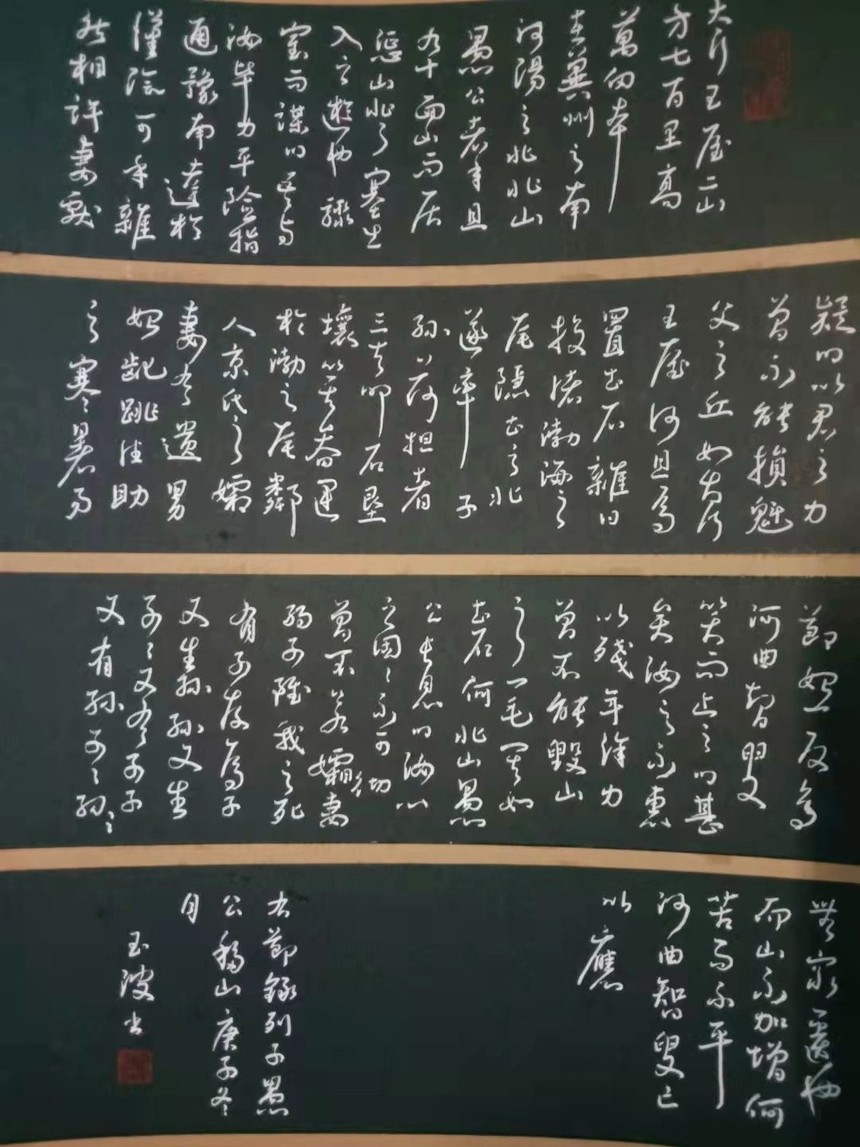 太行王屋二山
方七百里高
萬仞本
在冀州之南
河陽之北北山
愚公者年且
九十面山而居
懲山北之塞出
入之迂也聚
室而謀曰吾与
汝畢力平險指
通豫南達於
漢陰可乎雜
然相許妻獻
疑曰以君之力
曾不能損魁
父之丘如太行
王屋何且焉
置土石雜曰
投諸渤海之
尾隱土之北
遂率子
孫荷担者
三夫叩石墾
壤以箕畚運
於渤之尾鄰
人京氏之孀
妻有遺男
始齔跳往助
之寒暑易
節始一反焉
河曲智叟
笑而止之曰甚
矣汝之不惠
以殘年餘力
曾不能毀山
之一毛其如
土石何北山愚
公長息曰汝心
之固固不可彻
曾不若孀妻
弱子雖我之死
有子存焉子
又生孫孫又生
子子又有子子
又有孫子子孫孫
無窮匱也
而山不加增何
苦而不平
河曲智叟亡
以應
右節錄列子愚
公移山庚子冬
月
玉波書